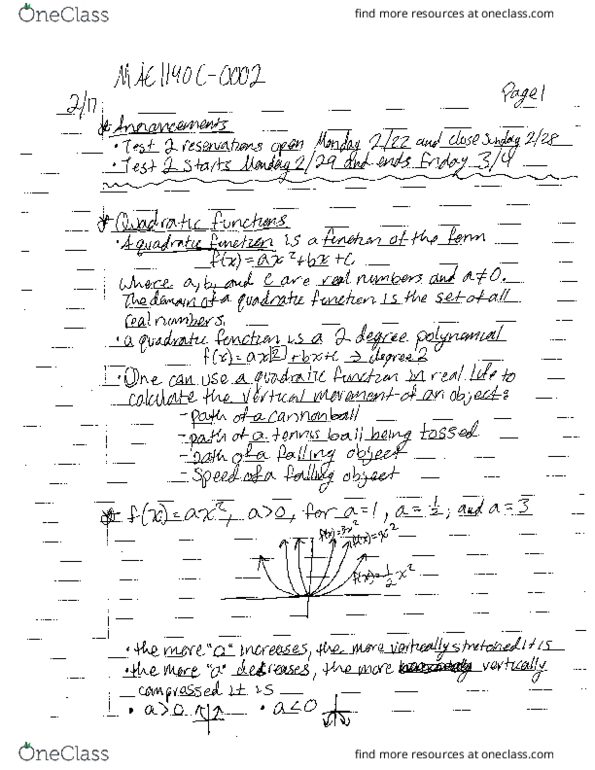 OneClass
find more resources at oneclass.com
MAC1140C-0002
Page 1
2/17
* Announcements
• Test 2 reservations open Monday 2/22 and close Sunday 2/28
• Test 2 starts Monday 2/29 and ends Friday 3/4
* Quadratic functions
• A quadratic function is a function of the form
f(x)=ax²+bx+c,
where a, b, and c are real numbers and a≠0.
The domain of a quadratic function is the set of all
real numbers.
• a quadratic function is a 2 degree polynomial
f(x)=ax[2]+bx+c → degree 2
• One can use a quadratic function in real life to
calculate the vertical movement of an object:
- path of a cannonball
- path of a tennis ball being tossed
- path of a falling object
- speed of a falling object
* f(x)=ax², a>0, for a=1, a=1/2, and a=3
f(x)=3x²
f(x)=x²
f(x)=1/2x²
• the more "a" increases, the more vertically stretched it is
• the more "a" decreases, the more vertically
compressed it is
• a>0 • a<0
OneClass
find more resources at oneclass.com